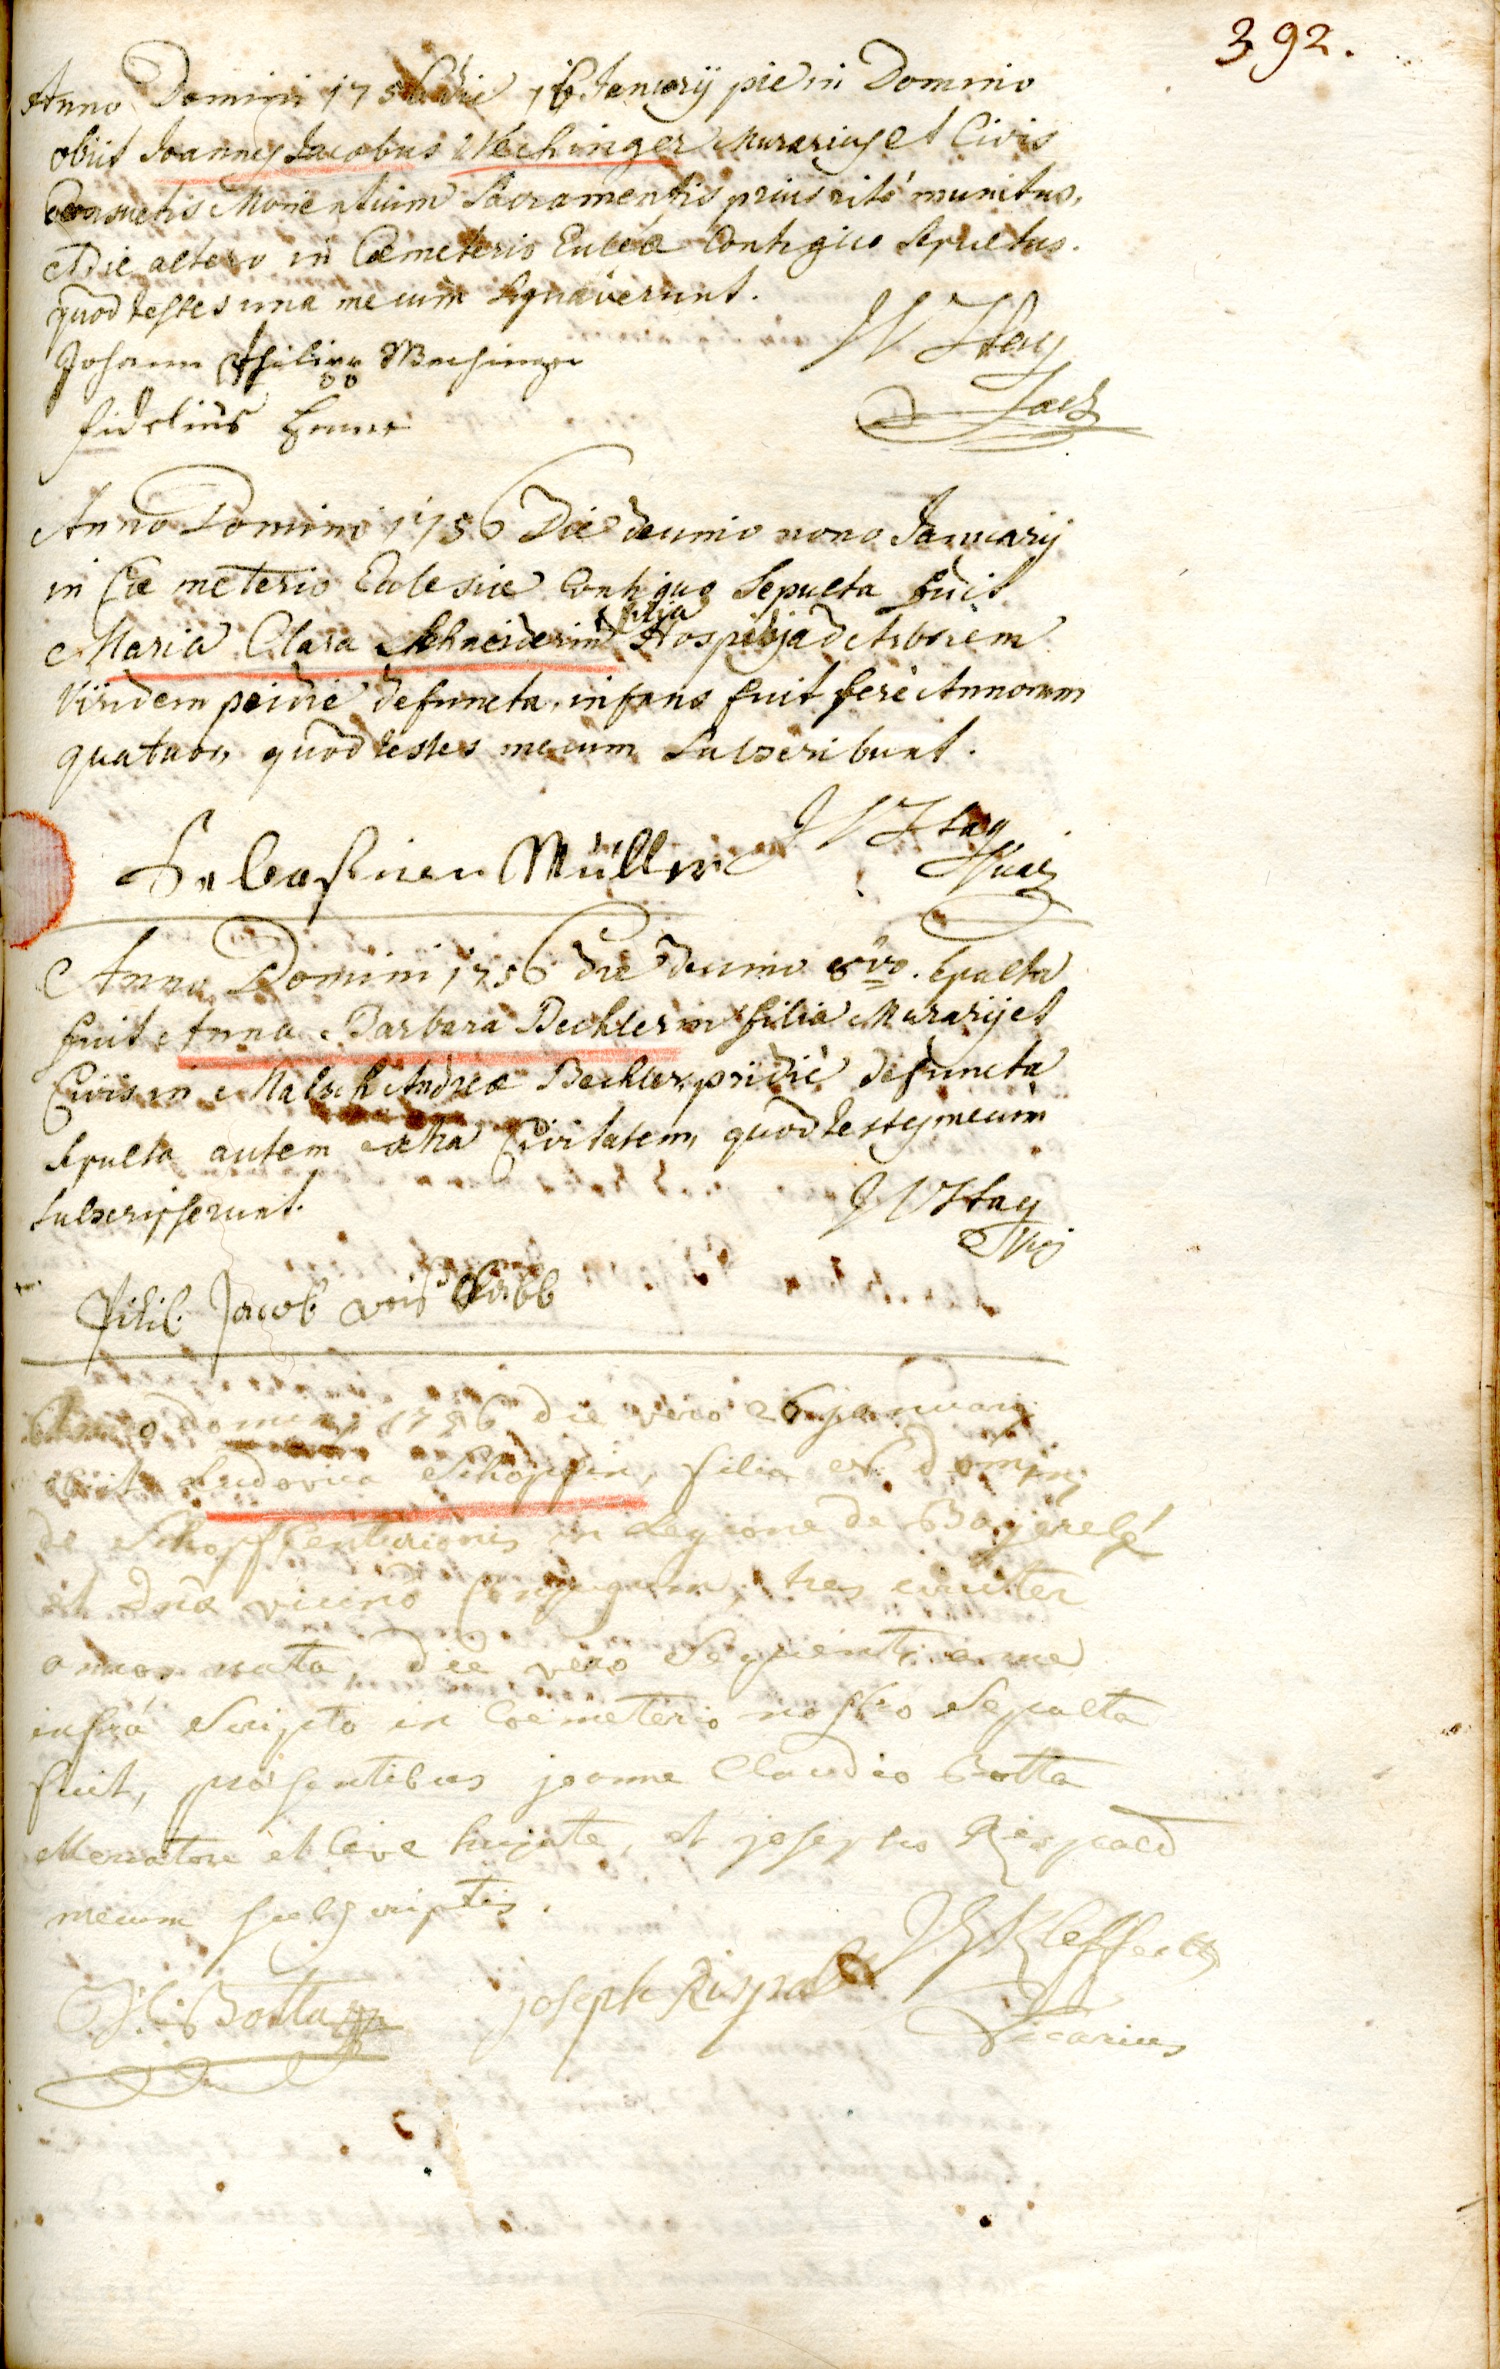 392.
Anno Domini 1756 die 16 Januarij pie in Domino
obiit Joannes Jacobus Wechinger Murarius et Civis
Consuetis Morientium Sacramentis prius rité munitus,
Die altero in Coemeterio Eccłæ Contiguo Sepultus.
quod testes una mecum Signaverunt.
Johann Philipp
W Hay
fidelius
Anno Domini 1756 Die decimo nono Januarij
in Coemeterio Ecclesiæ Contiguo Sepulta fuit
filia
Maria Clara Schneiderin Hospitis ad Arborem
Viridem pridie defuncta, infans fuit feré Annorum
quatuor, quod testes mecum Subscribunt.
Sebastian Müller
J W Hay
Anno Domini 1756 die decimo 8vo. Sepulta
fuit Anna Barbara Bechlerin filia Murarij et
Civis in Malsch Andreæ Bechler, pridie defuncta
Sepulta autem extra Civitatem, quod testes mecum
Subscripserunt.
J W Hay
Philib. Jacob
Anno domini 1756 die vero 26 januarij
obiit Ludovica Schopfin, filia ex domini
de Schopf Centurionis in Legione de Bayer
et Dnæ Conjugum, tres circiter
annos nata, die vero Sequenti a me
infrá Scripto in Coemeterio nostro Sepulta
fuit, præsentibus joanne Claudio Botta
Mercatore et Cive hujate, et josepho Rispald
mecum subscriptis.
J. C. Botta
joseph Rispal
Vicarius